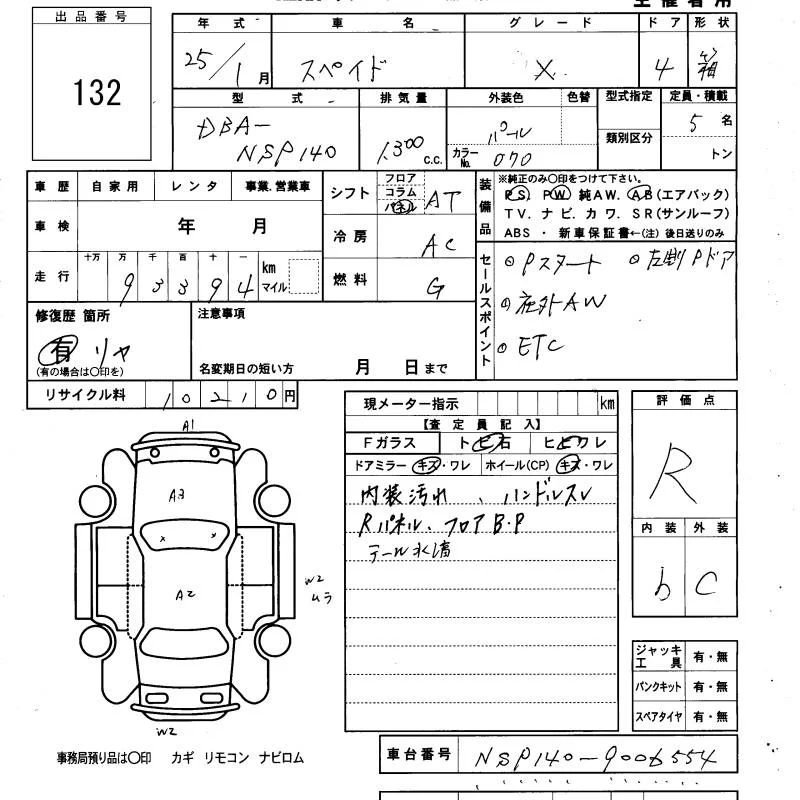 出品番号
132
年式 車名 グレード ドア 形状
25/1月 スペイド X 4 箱
型式 排気量 外装色 色替 型式指定 定員・積載
DBA-
NSP140
1300 c.c.
パール
カラーNo. 070
類別区分
5 名
トン
車歴 自家用 レンタ 事業.営業車
車検 年 月
走行 十万 万 千 百 十 一
9 3 3 9 4 km
マイル
シフト フロア
コラム
パネル
AT
冷房 AC
燃料 G
装備品
※純正のみ〇印をつけて下さい。
PS. PW 純AW. AB(エアバック)
TV. ナビ. カワ. SR(サンルーフ)
ABS ・ 新車保証書←(注) 後日送りのみ
セールスポイント
Pスタート 左側Pドア
社外AW
ETC
修復歴 箇所
有 リヤ
(有の場合は〇印を)
注意事項
名変期日の短い方 月 日まで
リサイクル料 10210円
現メーター指示 km
【査定員記入】
Fガラス トビ石 ヒビワレ
ドアミラー キズ・ワレ ホイール(CP) キズ・ワレ
内装汚れ、ハンドルスレ
Rパネル、フロアB・P
テール水滴
評価点
R
内装 外装
b C
A1
A3
x x
A2
W2
ムラ
W2
ジャッキ
工具 有・無
パンクキット 有・無
スペアタイヤ 有・無
事務局預り品は〇印 カギ リモコン ナビロム
車台番号 NSP140-9006554